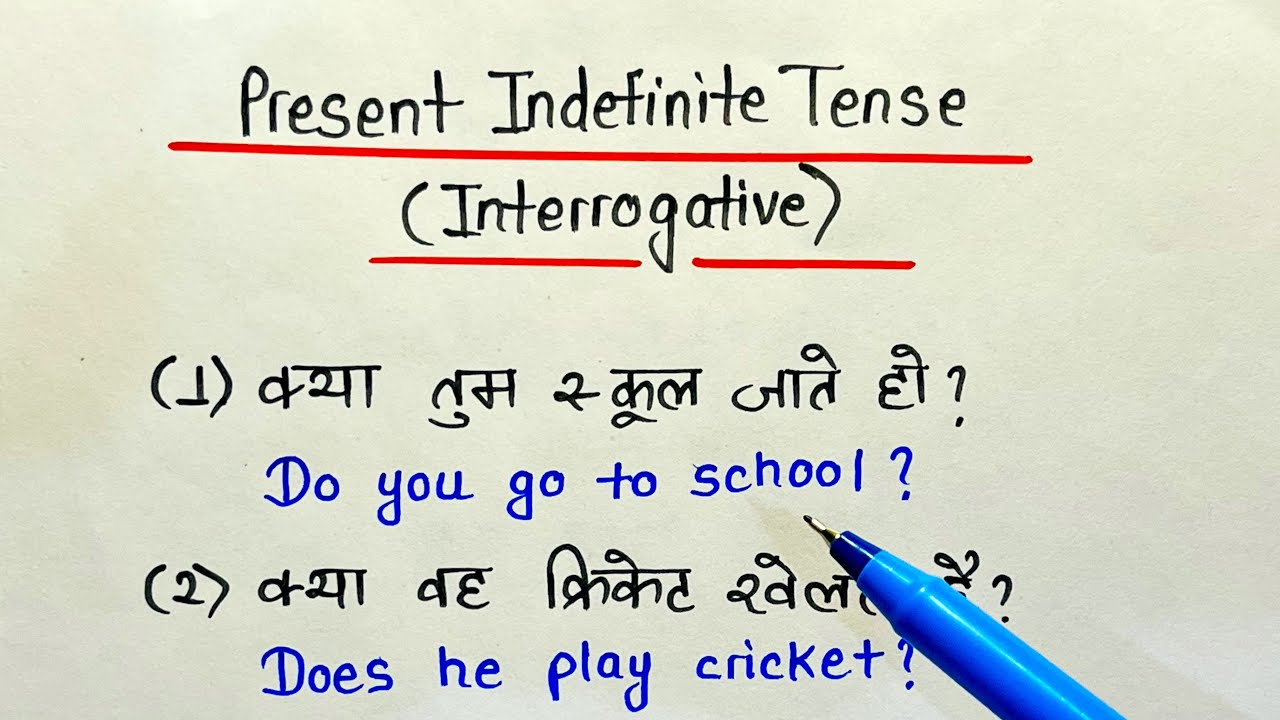 Present Indefinite Tense
(Interrogative)
(1) क्या तुम स्कूल जाते हो?
Do you go to school?
(2) क्या वह क्रिकेट है?
Does he play cricket?